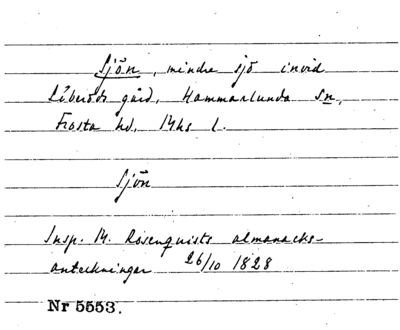 Sjön, mindre sjö invid
Liberöds gård, Hammarlunda sn,
Frosta hd, Mhs l.
Sjön
Insp. M. Rosenquists almanacks-
anteckningar 26/10 1828
Nr 5553.